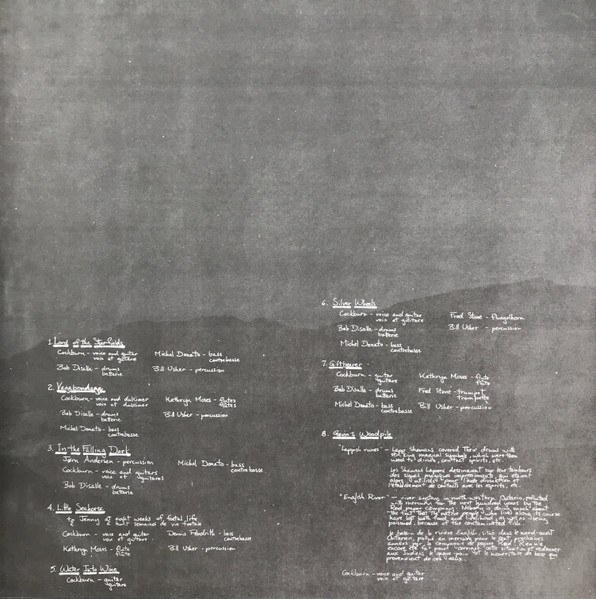 1. Lord of the Starfields
Cockburn - voice and guitar
voix et guitare
Michel Donato - bass
contrebasse
Bob Disalle - drums
batterie
Bill Usher - percussion
2. Vagabondage
Cockburn - voice and dulcimer
voix et dulcimer
Kathryn Moses - flute
flûtes
Bob Disalle - drums
batterie
Bill Usher - percussion
Michel Donato - bass
contrebasse
3. In the Falling Dark
Jørn Andersen - percussion
Michel Donato - bass
contrebasse
Cockburn - voice and guitars
voix et guitares
Bob Disalle - drums
batterie
4. Little Seahorse
Jenny at eight weeks of foetal life
huit semaines de vie foetale
Cockburn - voice and guitar
voix et guitare
Dennis Pendrith - bass
contrebasse
Kathryn Moses - flute
flûte
Bill Usher - percussion
5. Water Into Wine
Cockburn - guitar
guitare
6. Silver Wheels
Cockburn - voice and guitar
voix et guitare
Fred Stone - flugelhorn
Bob Disalle - drums
batterie
Bill Usher - percussion
Michel Donato - bass
contrebasse
7. Giftbearer
Cockburn - guitar
guitare
Kathryn Moses - flute
flûte
Bob Disalle - drums
batterie
Fred Stone - trumpet
trompette
Michel Donato - bass
contrebasse
Bill Usher - percussion
8. Gavin's Woodpile
"Lappish runes" - Lapp shamans covered their drums with
magical symbols which were then
used to divine, contact spirits, etc.
Les shamans Lapons
"English River" - river system in north-western Ontario, polluted
with mercury for the next hundred years by the
Reed paper company.
Cockburn - voice and guitar
voix et guitare